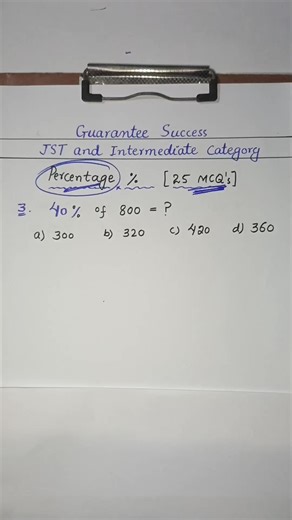 Guarantee Success
JST and Intermediate Category
Percentage % [25 MCQ's]
3. 40% of 800 = ?
a) 300 b) 320 c) 420 d) 360